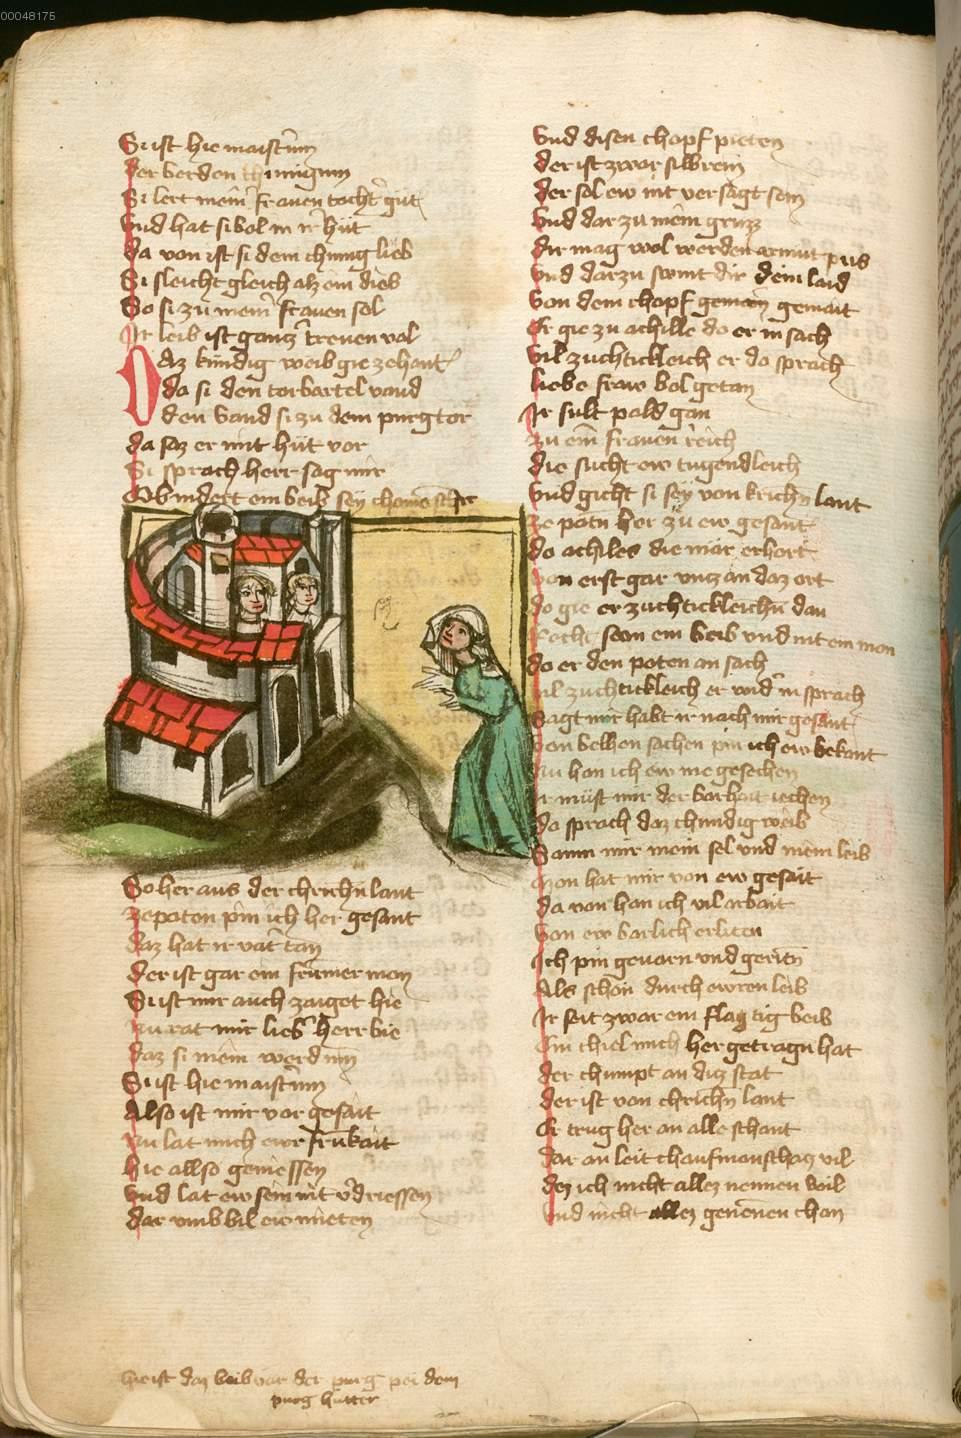 00048175
Si ist hie maistrinn
der berden chuniginn
Si lert mein frauen tocht gůt
Vnd hat si bol in ir hůt
da von ist si dem chunig lieb
Si sleicht gleich alz ein dieb
So si zu meinr frauen sol
Ir leib ist gantzr treuen vol
Daz kündig weib gie zehant
da si den torbärtel vand
den vand si zu dem purgtor
da saz er mit hüt vor
Si sprach herr sag mir
Ob indert ein beib sey chomen
So her aus der chrichn lant
ze poten pin ich her gesant
daz hat ir vatr tan
der ist gar ein frumer man
Si ist mir auch zaiget hie
nu rat mir lieber herr bie
daz si mein werd inn
Si ist hie maistrinn
Also ist mir vor gesait
nu lat mich ewr frumkait
hie allso geniessen
Vnd lat ew sein nit vdriessen
dar vmb bil ew mieten
Vnd disen chopf pieten
der ist zwar silbrein
der sol ew nit versagt sein
Vnd dar zu mein gruzz
dir mag wol werden armut pus
Vnd darzu swint dir dein laid
Von dem chopf gemain gemait
Er gie zu achille do er in sach
vil zuchtickleich er do sprach
liebe fraw bol getan
Ir sult pald gan
zu ein frauen reich
die sucht ew tugendleich
Vnd gicht si sey von krichn lant
ze potn her zu ew gesant
do achiles die mär erhort
von erst gar vncz an daz ort
do gie er zuchtickleichn dan
Recht sam ein beib vnd nit ein man
do er den poten an sach
vil zuchtickleich er vnd in sprach
Sagt mir habt ir nach mir gesant
Von belhen sachen pin ich ew bekant
Nu han ich ew nie gesechen
Ir müst mir der barhait iechen
do sprach daz chundig weib
Samir mein sel vnd mein leib
man hat mir von ew gesait
da von han ich vil arbait
Von ew barlich erliten
Ich pin geuarn vnd geritn
Als schon durch ewren leib
Ir seit zwar ein beib
Ein chiel mich her getragn hat
der chumpt an diz stat
der ist von chrichn lant
Er trug her an alle schant
dar an leit chaufmanschaz vil
dez ich nicht allez nennen bil
Vnd nicht allez genennen chan
hie ist daz beib vor der purg pei dem
purg hutter